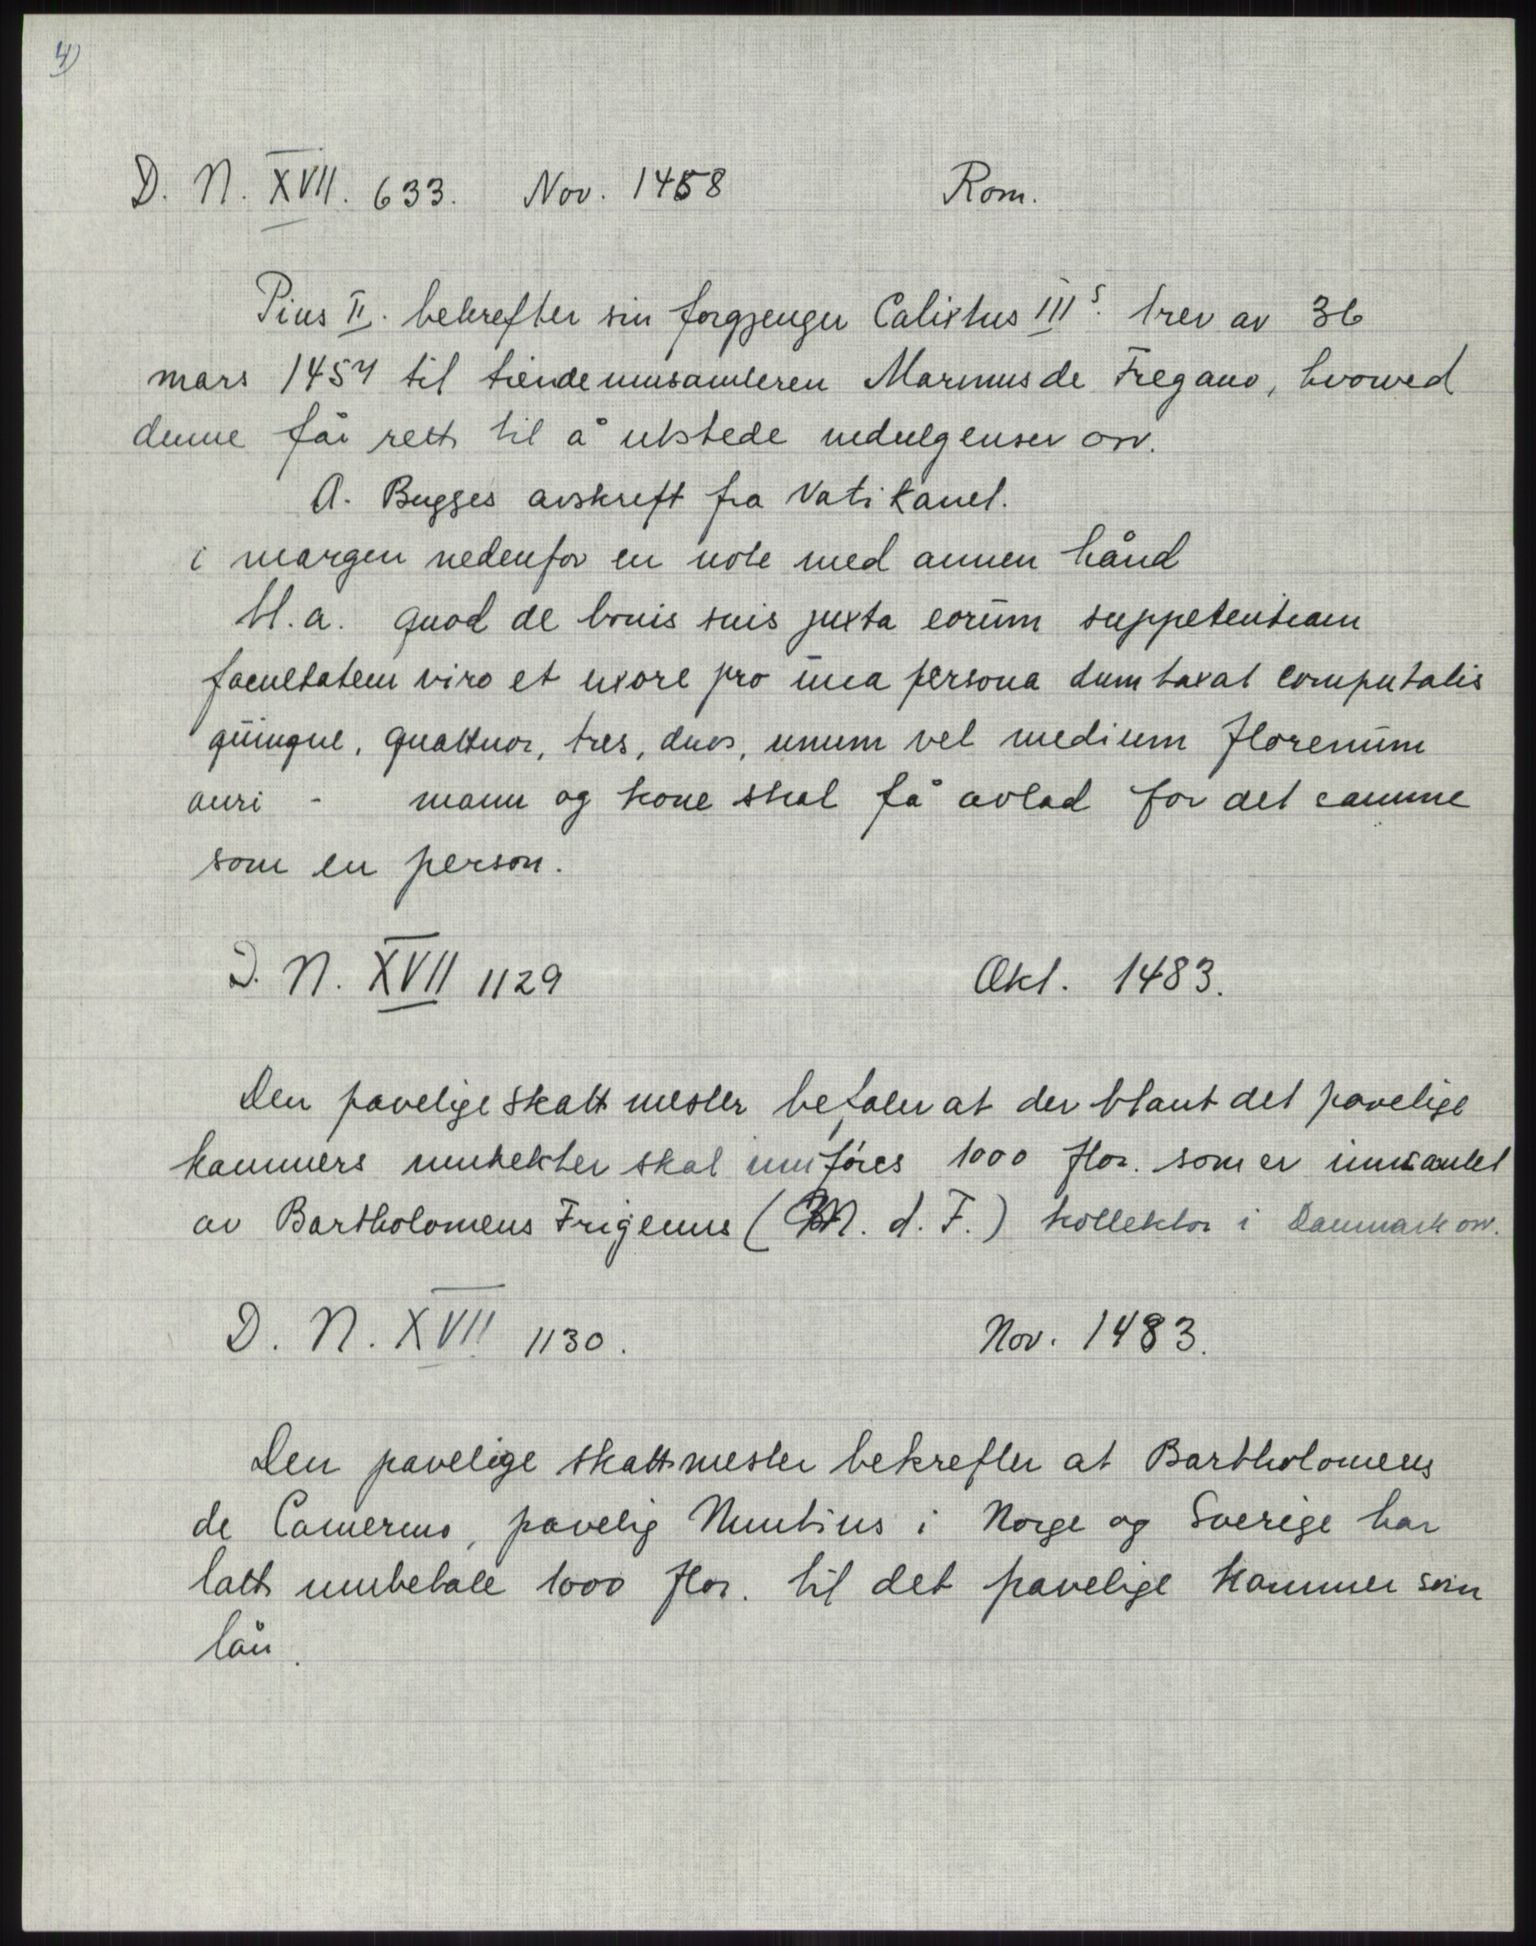 4)
D. N. XVII. 633. Nov. 1458 Rom.
Pius II. bekrefter sin forgjenger Calixtus III s. brev av 36
mars 1457 til tiendeinnsamleren Marinus de Fregano, hvorved
denne får rett til å utstede indulgenser osv.
A. Bugges avskrift fra Vatikanet.
i margen nedenfor en note med annen hånd
bl. a. quod de bonis suis juxta eorum suppetentiam
facultatem viro et uxore pro una persona dumtaxat computatis
quinque, quattuor, tres, duos, unum vel medium florenum
auri - mann og kone skal få avlad for det samme
som en person.
D. N. XVII 1129 Okt. 1483.
Den pavelige skattmester befaler at der blant det pavelige
kammers inntekter skal innføres 1000 flor. som er innsamlet
av Bartholomeus Frigenus (M. d. F.) kollektor i Danmark osv.
D. N. XVII 1130. Nov. 1483.
Den pavelige skattmester bekrefter at Bartholomeus
de Camerino, pavelig Nuntius i Norge og Sverige har
latt innbetale 1000 flor. til det pavelige kammer som
lån.